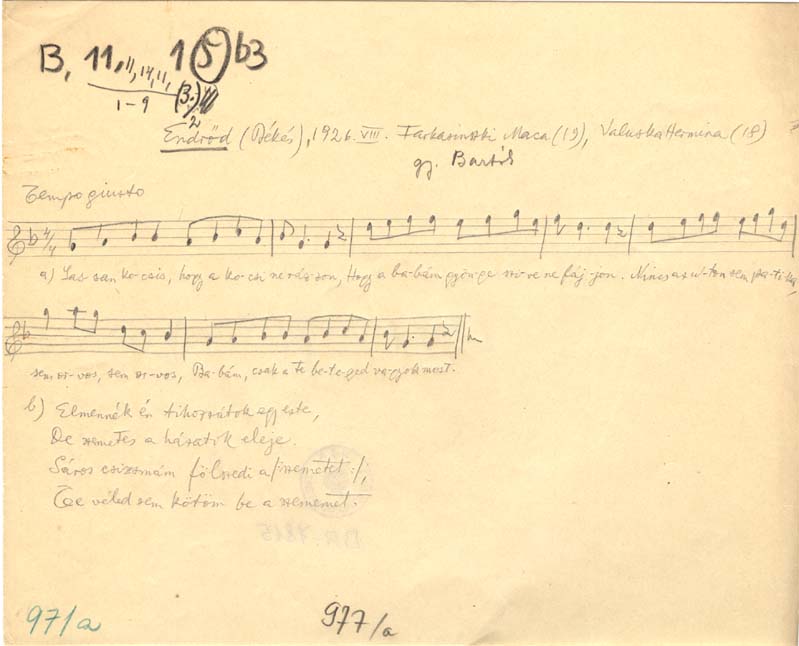 B, 11, 11, 14, 11, 1 5 b3
1-9 (3.)
2
Endrőd (Békés), 1926. VIII. Farkasinszki Maca (19), Valuska Hermina (18)
gy. Bartók
Tempo giusto
4/4
a) Las-san ko-csis, hogy a ko-csi ne ráz-zon, Hogy a ba-bám gyön-ge szi-ve ne fáj-jon. Nincs az u-ton sem pa-ti-ka,
sem or-vos, sem or-vos, Ba-bám, csak a te be-te-ged va-gyok most.
b) Elmennék én tihozzátok egy este,
De szemetes a házatik eléje.
Sáros csizmám fölszedi a /: szemetet :/,
Te véled sem kötöm be a szememet.
BR. 7815
97/a 977/a